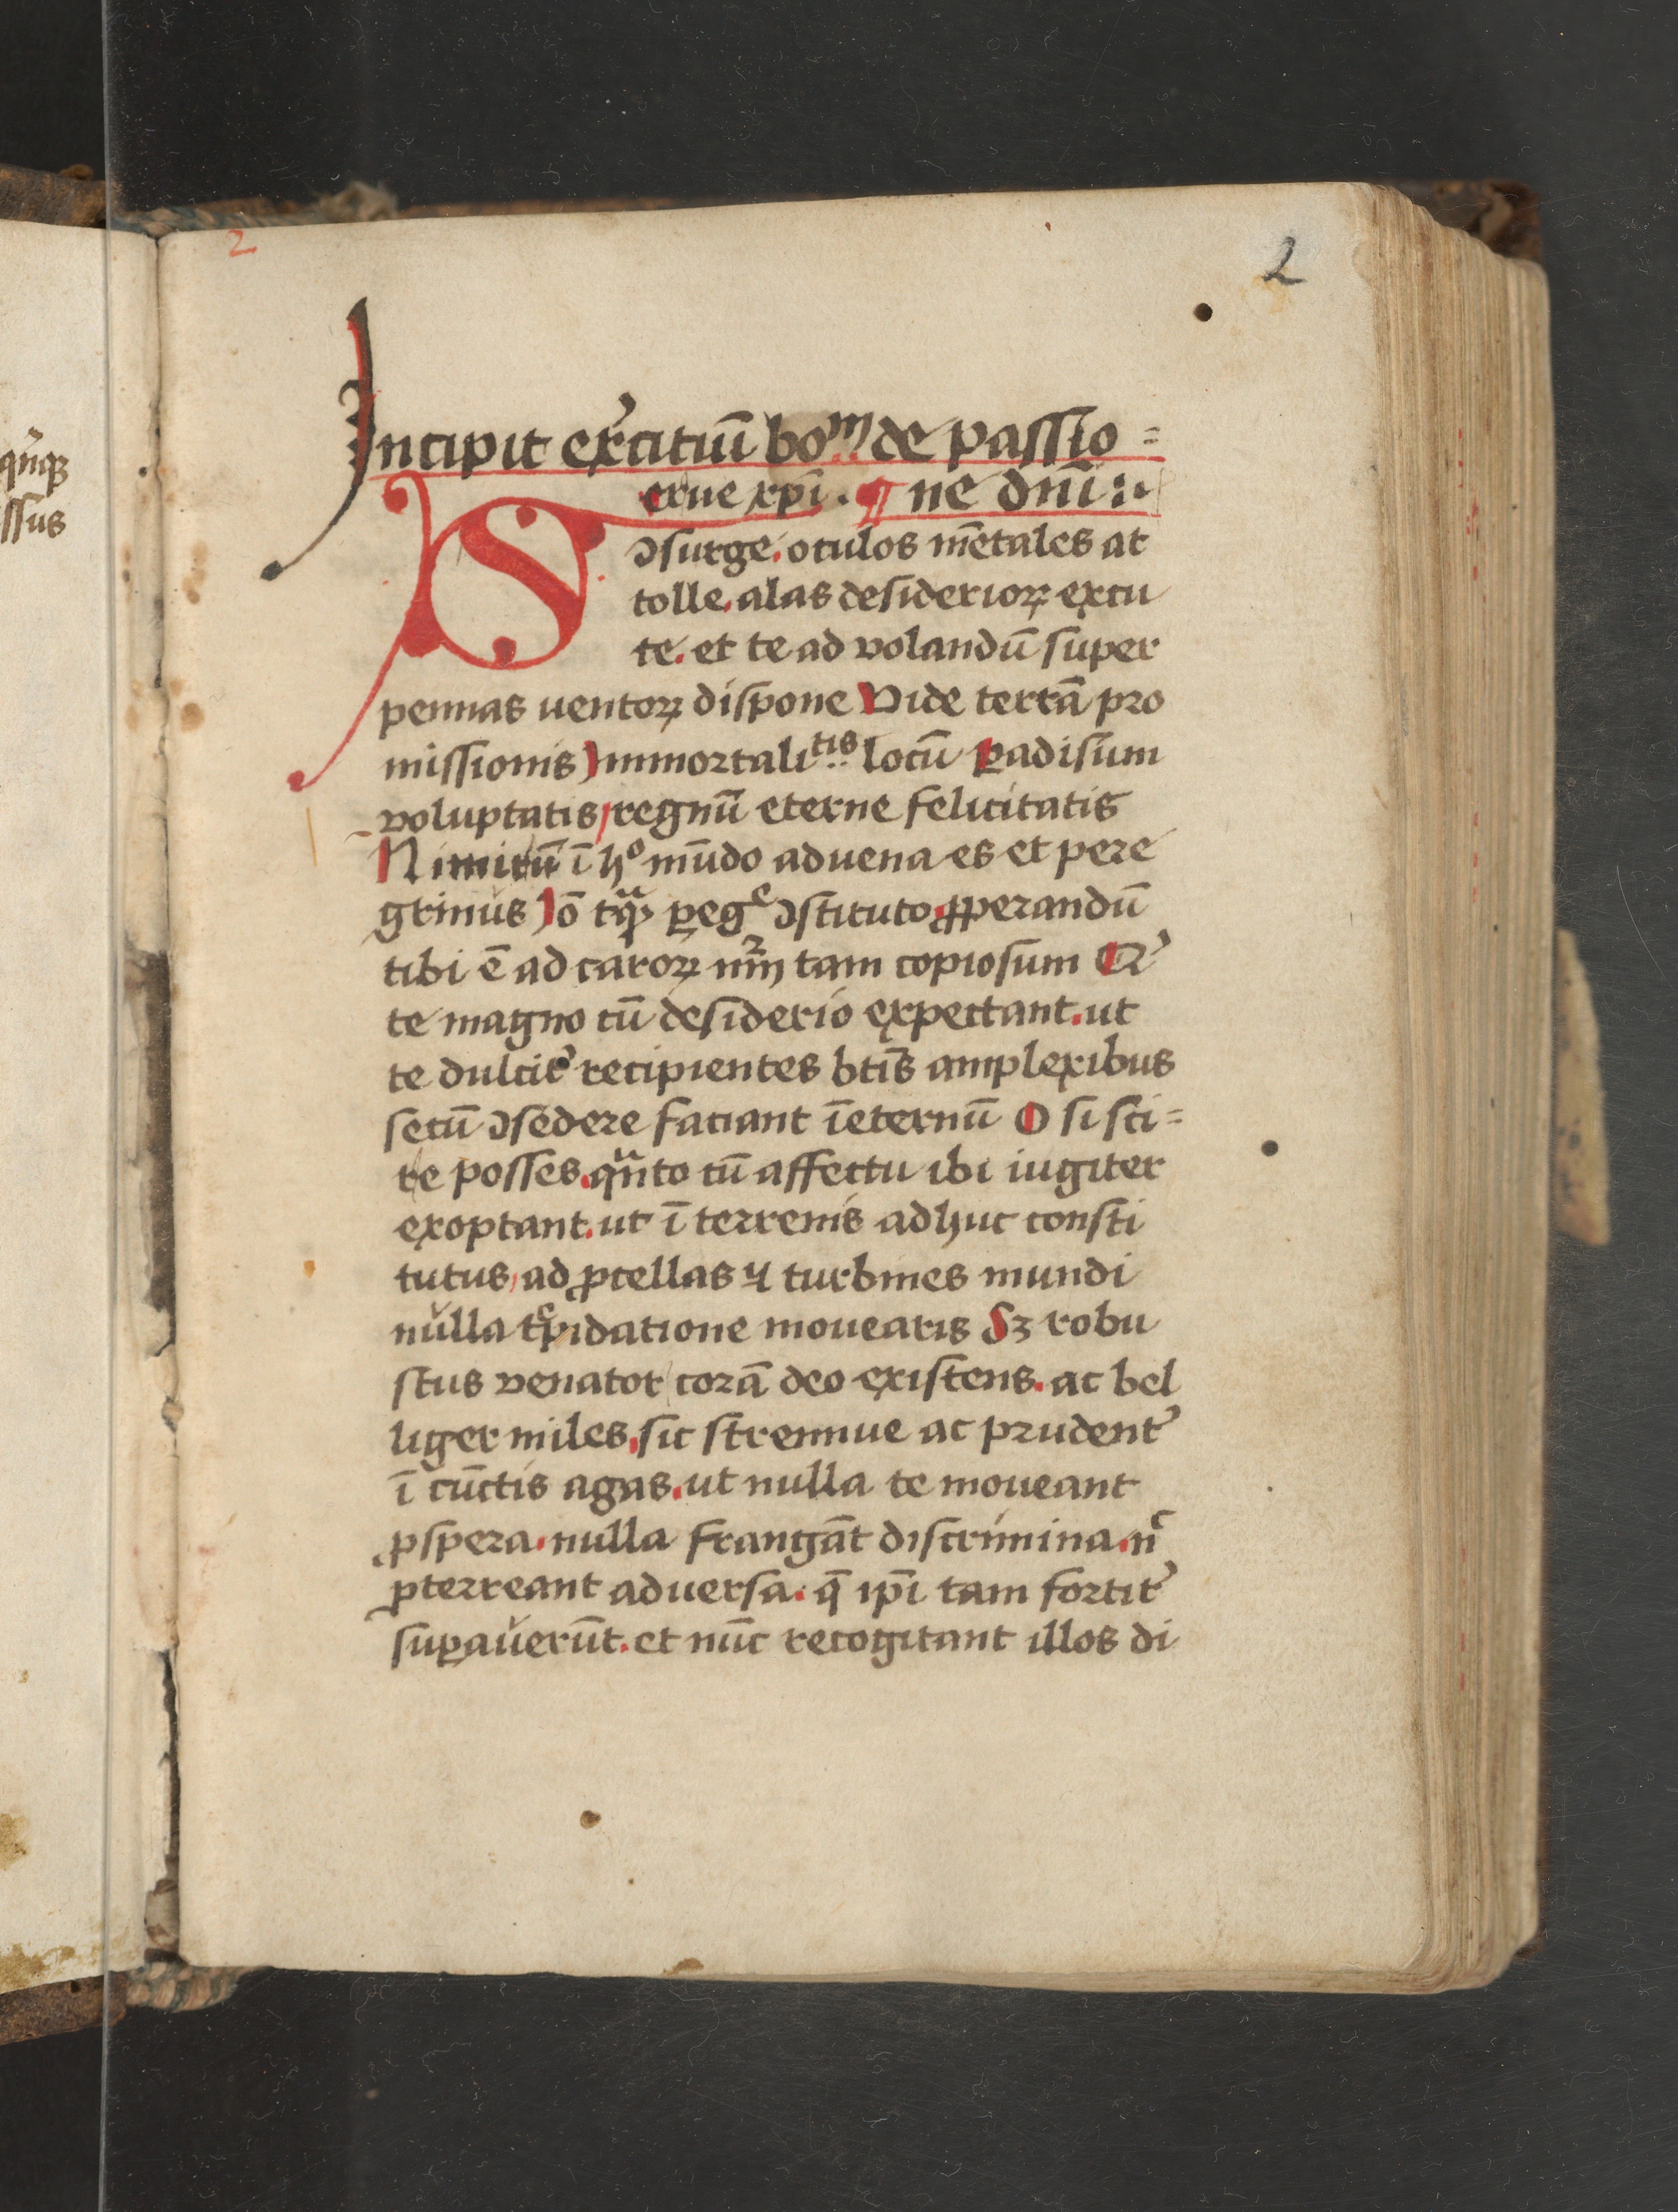 2
2
Incipit exˀcitiū boᵐ de passio=
Serue xp̄i . ¶ ne dn̄i :
ↄsurge. oculos mētales at
tolle. alas desiderioꝝ excu
te. et te ad volandū super
pennas ventoꝝ dispone Vide terrā pro
missionis Immortaliᵗⁱˢ locū ꝑadisum
voluptatis regnū eterne felicitatis
Nimirū ī hº mūdo aduena es et pere
grinus Iō tqᵃ ꝑegᵉ ↄstituto ꝓperandū
tibi ē ad caroꝝ nr̄m tam copiosum Qˀ
te magno cū desiderio expectant. ut
te dulcitˀ recipientes btīs amplexibus
secū ↄsedere faciant īeternū O si sci=
re posses. qᵃnto cū affectu ibi iugiter
exoptant. ut ī terrenis adhuc consti
tutus, ad ꝓcellas ⁊ turbines mundi
nulla tᵉpidatione mouearis Sꝫ robu
stus venator corā deo existens. ac bel
liger miles, sic strennue ac prudentˀ
ī cūctis agas. ut nulla te moueant
ꝓspera. nulla frangāt discrimina. nᶜ
ꝑterreant aduersa. q̄ ip̄i tam fortitˀ
suꝑauerūt. et nūc recogitant illos di